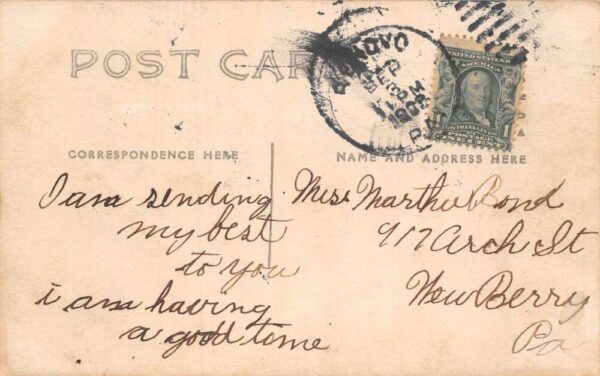 POST CARD
RENOVO
SEP
1908
PA.
UNITED STATES OF AMERICA
FRANKLIN
1
CORRESPONDENCE HERE
NAME AND ADDRESS HERE
I am sending
my best
to you
i am having
a good tome
Miss Martha Bond
917 Arch St
New Berry
Pa